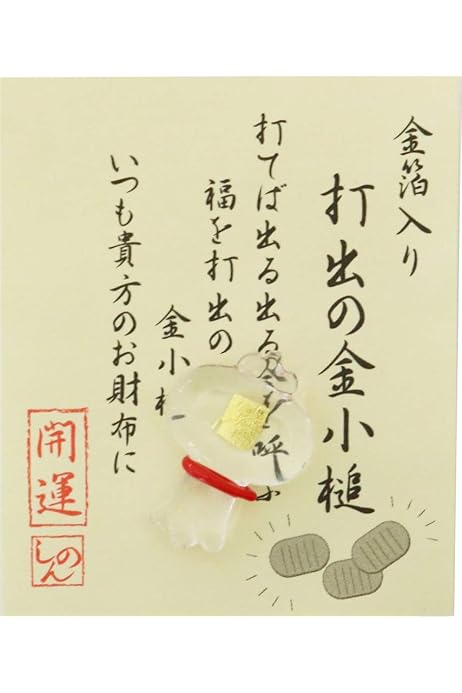 金箔入り
打出の金小槌
打てば出る出る 呼ぶ
福を打出の
金小
いつも貴方のお財布に
開運